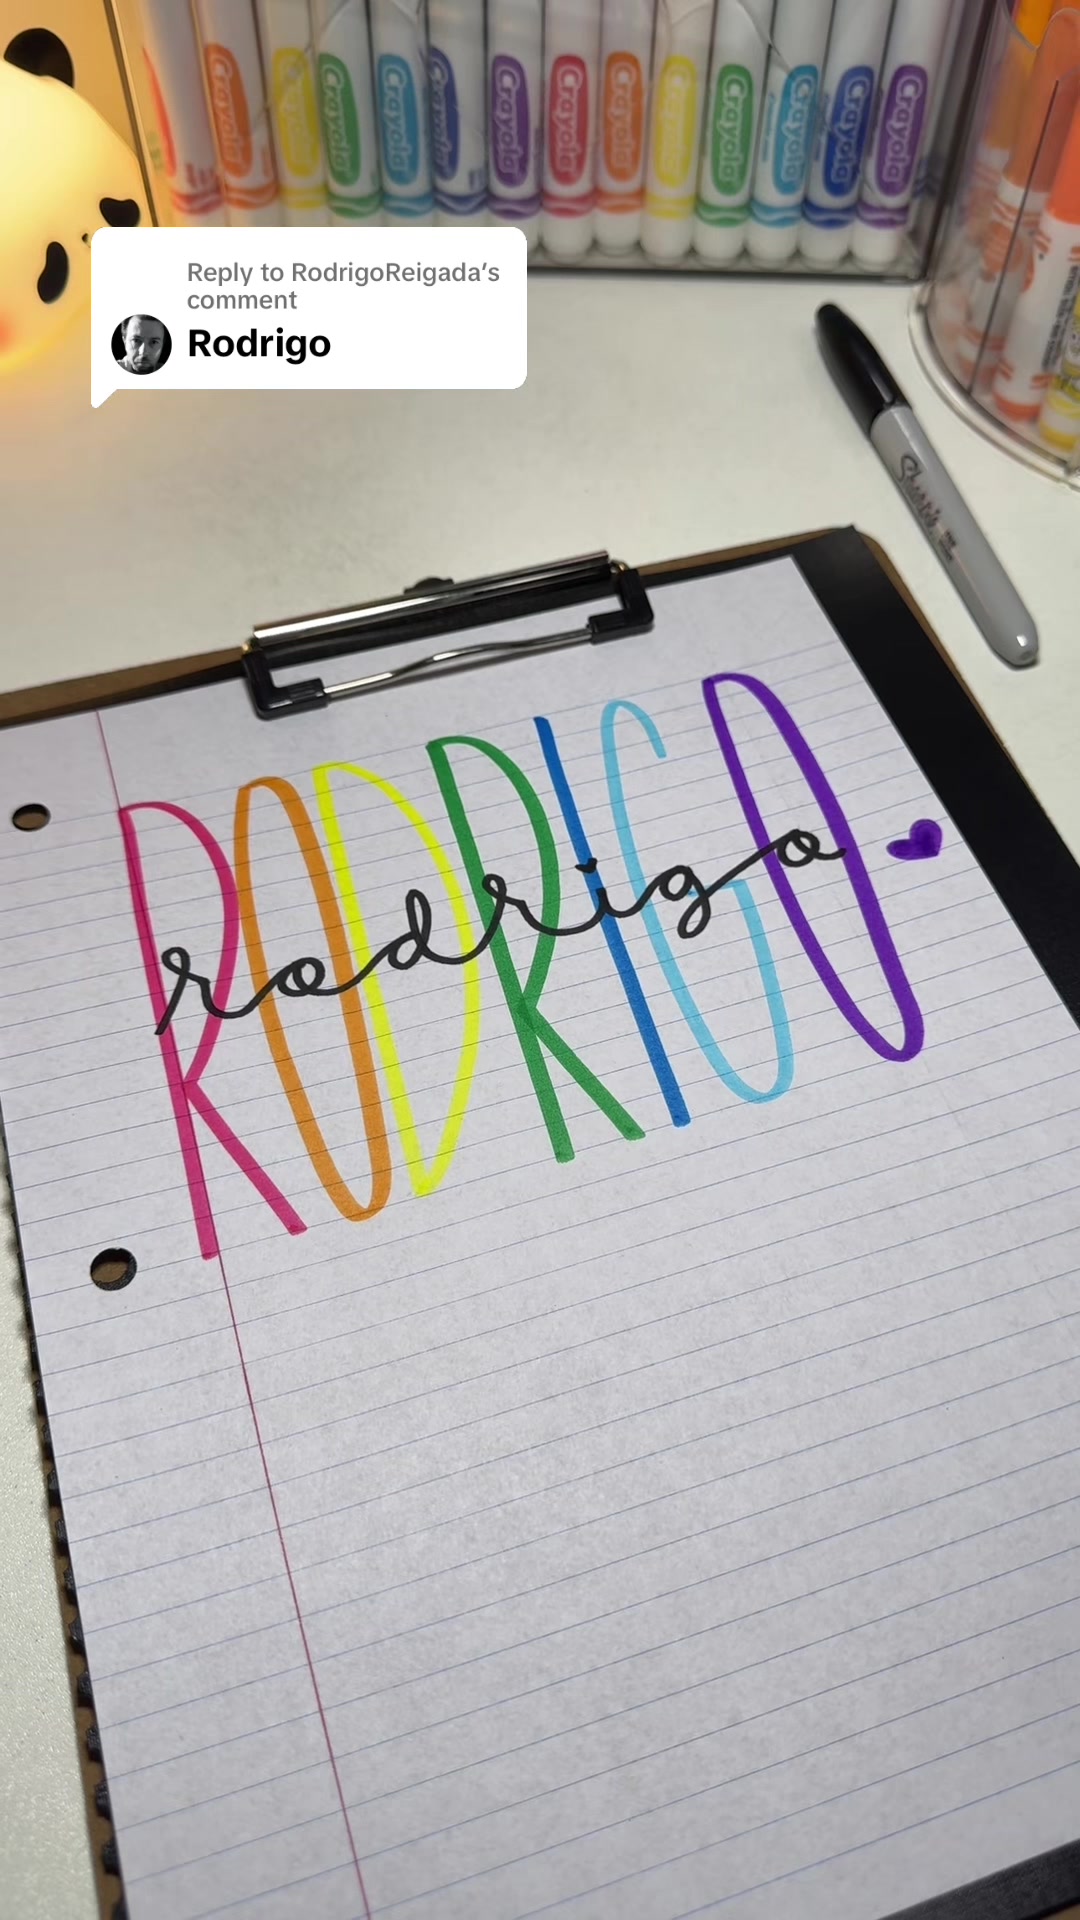 Crayola Crayola Crayola Crayola Crayola Crayola Crayola Crayola Crayola Crayola Crayola Crayola Crayola
Reply to RodrigoReigada's
comment
Rodrigo
Sharpie
RODRIGO
rodrigo